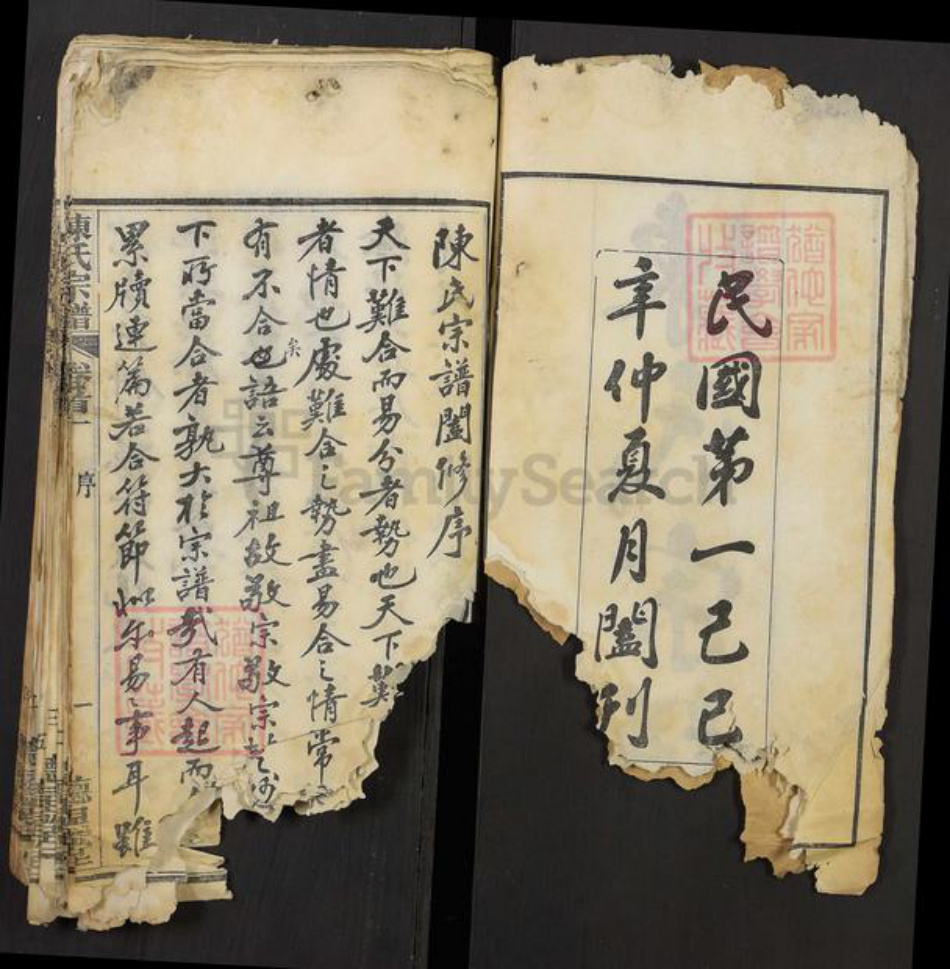 民國第一己巳
辛仲夏月闔刋
陳氏宗譜闔修序
天下難合而易分者勢也天下
者情也處難合之勢盡易合之情常
有不合也矣語云尊祖故敬宗敬宗
下所當合者孰大於宗譜哉有人起而
累牘連篇若合符節似尔易〻事耳雖
陳氏宗譜 卷首一 序 一
FamilySearch